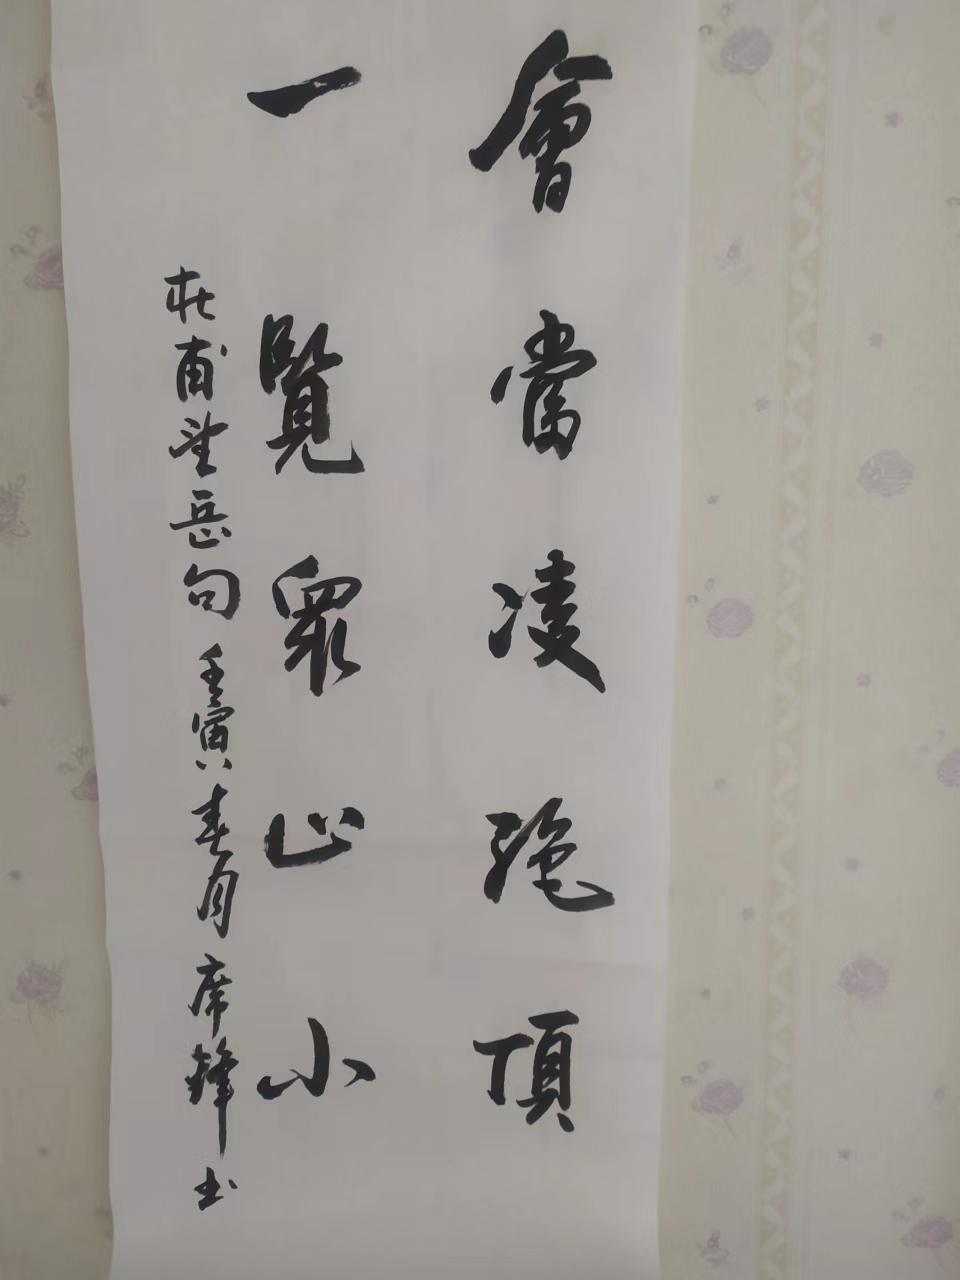 會當凌絕頂
一覽眾山小
杜甫望岳句壬寅春月席鋒书